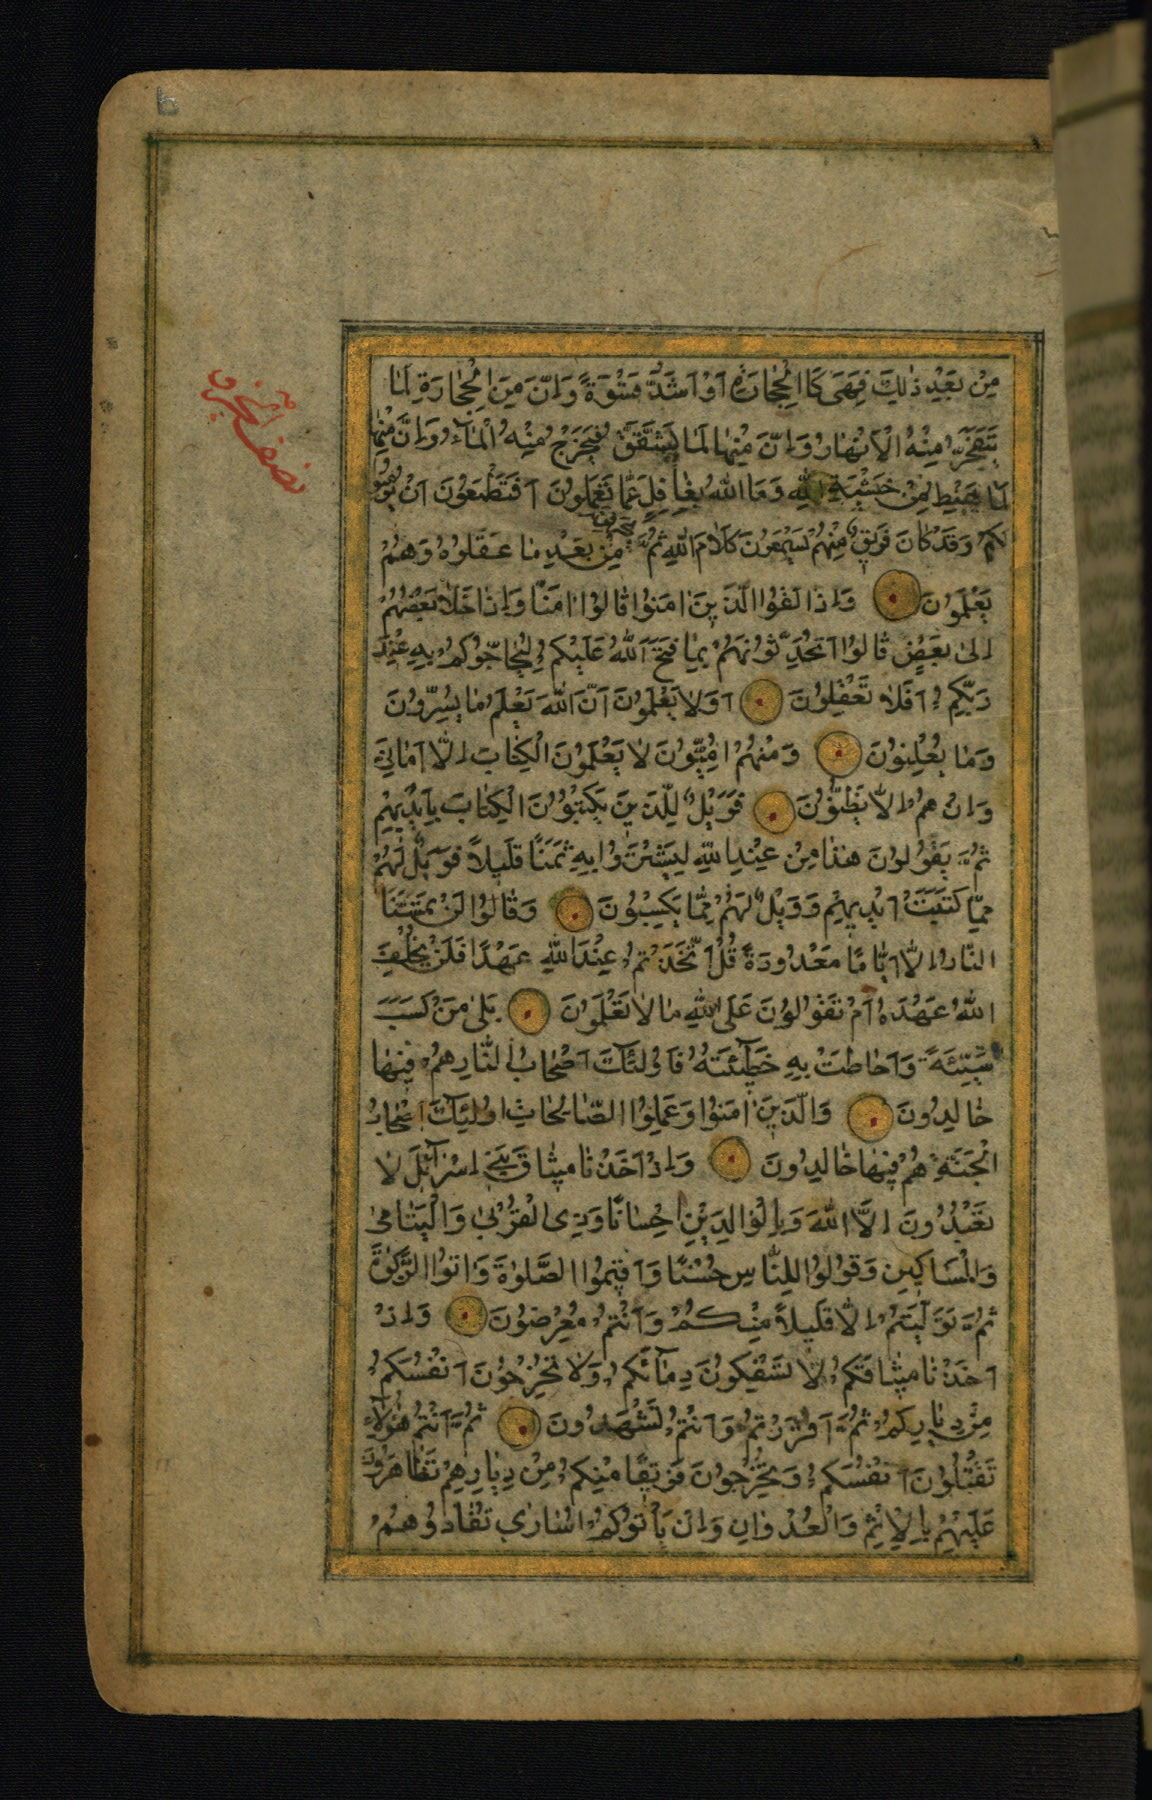 مِنْ بَعْدِ ذٰلِكَ فَهِیَ كَا الْحِجٰارَةِ اَوْ اَشَدُّ قَسْوَةً وَاِنَّ مِنَ الْحِجٰارَةِ لَمٰا
یَتَفَجَّرُ مِنْهُ الْاَنْهٰارُ وَاِنَّ مِنْهٰا لَمٰا یَشَّقَّقُ فَیَخْرُجُ مِنْهُ الْمٰآءُ وَاِنَّ مِنْهٰا
لَمٰا یَهْبِطُ مِنْ خَشْیَةِ اللّٰهِ وَمَا اللّٰهُ بِغٰافِلٍ عَمّٰا تَعْمَلُونَ اَفَتَطْمَعُونَ اَنْ یُؤْمِنُوا
لَكُمْ وَقَدْ كٰانَ فَرِیقٌ مِنْهُمْ یَسْمَعُونَ كَلٰامَ اللّٰهِ ثُمَّ یُحَرِّفُونَهُ مِنْ بَعْدِ مٰا عَقَلُوهُ وَهُمْ
یَعْلَمُونَ وَاِذٰا لَقُوا الَّذِینَ اٰمَنُوا قٰالُوا اٰمَنّٰا وَاِذٰا خَلٰا بَعْضُهُمْ
اِلیٰ بَعْضٍ قٰالُوا اَتُحَدِّثُونَهُمْ بِمٰا فَتَحَ اللّٰهُ عَلَیْكُمْ لِیُحٰاجُّوكُمْ بِهِ عِنْدَ
رَبِّكُمْ اَفَلٰا تَعْقِلُونَ اَوَلٰا یَعْلَمُونَ اَنَّ اللّٰهَ یَعْلَمُ مٰا یُسِرُّونَ
وَمٰا یُعْلِنُونَ وَمِنْهُمْ اُمِّیُّونَ لٰا یَعْلَمُونَ الْكِتٰابَ اِلّٰا اَمٰانِیَّ
وَاِنْ هُمْ اِلّٰا یَظُنُّونَ فَوَیْلٌ لِلَّذِینَ یَكْتُبُونَ الْكِتٰابَ بِاَیْدِیهِمْ
ثُمَّ یَقُولُونَ هٰذٰا مِنْ عِنْدِ اللّٰهِ لِیَشْتَرُوا بِهِ ثَمَنًا قَلِیلاً فَوَیْلٌ لَهُمْ
مِمّٰا كَتَبَتْ اَیْدِیهِمْ وَوَیْلٌ لَهُمْ مِمّٰا یَكْسِبُونَ وَقٰالُوا لَنْ تَمَسَّنَا
النّٰارُ اِلّٰا اَیّٰامًا مَعْدُودَةً قُلْ اَتَّخَذْتُمْ عِنْدَ اللّٰهِ عَهْدًا فَلَنْ یُخْلِفَ
اللّٰهُ عَهْدَهُ اَمْ تَقُولُونَ عَلَی اللّٰهِ مٰا لٰا تَعْلَمُونَ بَلیٰ مَنْ كَسَبَ
سَیِّئَةً وَاَحٰاطَتْ بِهِ خَطٖٓیئَتُهُ فَاُولٰئِكَ اَصْحٰابُ النّٰارِ هُمْ فِیهٰا
خٰالِدُونَ وَالَّذِینَ اٰمَنُوا وَعَمِلُوا الصّٰالِحٰاتِ اُولٰئِكَ اَصْحٰابُ
الْجَنَّةِ هُمْ فِیهٰا خٰالِدُونَ وَاِذْ اَخَذْنٰا مِیثٰاقَ بَنِی اِسْرٰٓائِلَ لٰا
تَعْبُدُونَ اِلَّا اللّٰهَ وَبِالْوٰالِدَیْنِ اِحْسٰانًا وَذِی الْقُرْبیٰ وَالْیَتٰامیٰ
وَالْمَسٰاكِینِ وَقُولُوا لِلنّٰاسِ حُسْنًا وَاَقِیمُوا الصَّلٰوةَ وَاٰتُوا الزَّكٰوةَ
ثُمَّ تَوَلَّیْتُمْ اِلّٰا قَلِیلاً مِنْكُمْ وَاَنْتُمْ مُعْرِضُونَ وَاِذْ
اَخَذْنٰا مِیثٰاقَكُمْ لٰا تَسْفِكُونَ دِمٰآئَكُمْ وَلٰا تُخْرِجُونَ اَنْفُسَكُمْ
مِنْ دِیٰارِكُمْ ثُمَّ اَقْرَرْتُمْ وَاَنْتُمْ تَشْهَدُونَ ثُمَّ اَنْتُمْ هٰؤُلٰآءِ
تَقْتُلُونَ اَنْفُسَكُمْ وَتُخْرِجُونَ فَرِیقًا مِنْكُمْ مِنْ دِیٰارِهِمْ تَظٰاهَرُونَ
عَلَیْهِمْ بِالْاِثْمِ وَالْعُدْوٰانِ وَاِنْ یَأْتُوكُمْ اُسٰاریٰ تُفٰادُوهُمْ
نصف الحزب